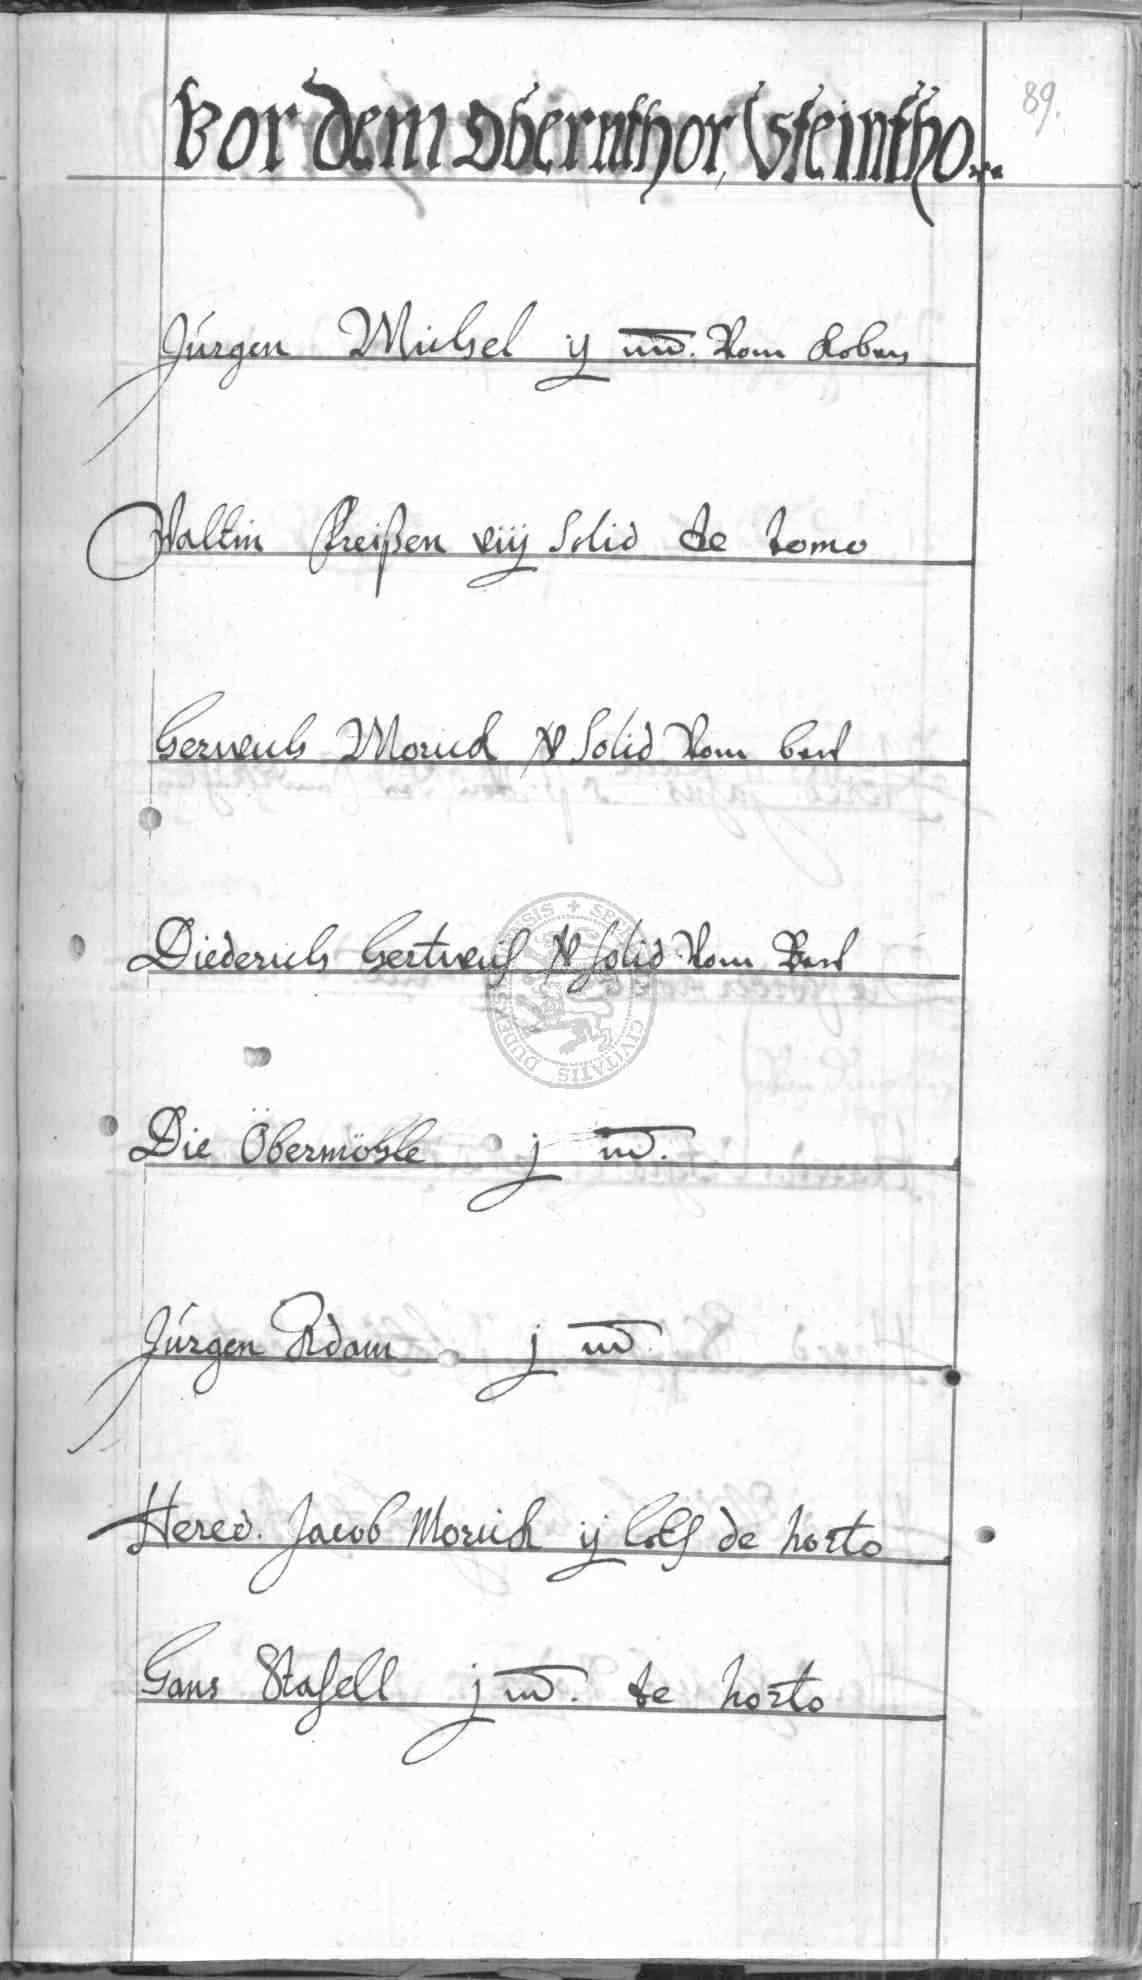 89.
Vor dem Obernthor, Steintho...
Jürgen Michel ij md. Vom Koben
Valtin Preißen viij Solid de domo
Gerwich Morich v Solid Vom berl
Diederich Hertwich v solid Vom Berl
Die Obermöhle j md.
Jürgen Adam j md
Hered. Jacob Morich ij loth de horto
Hans Stahell j md. de horto
SIGILLUM CIVITATIS DUDE